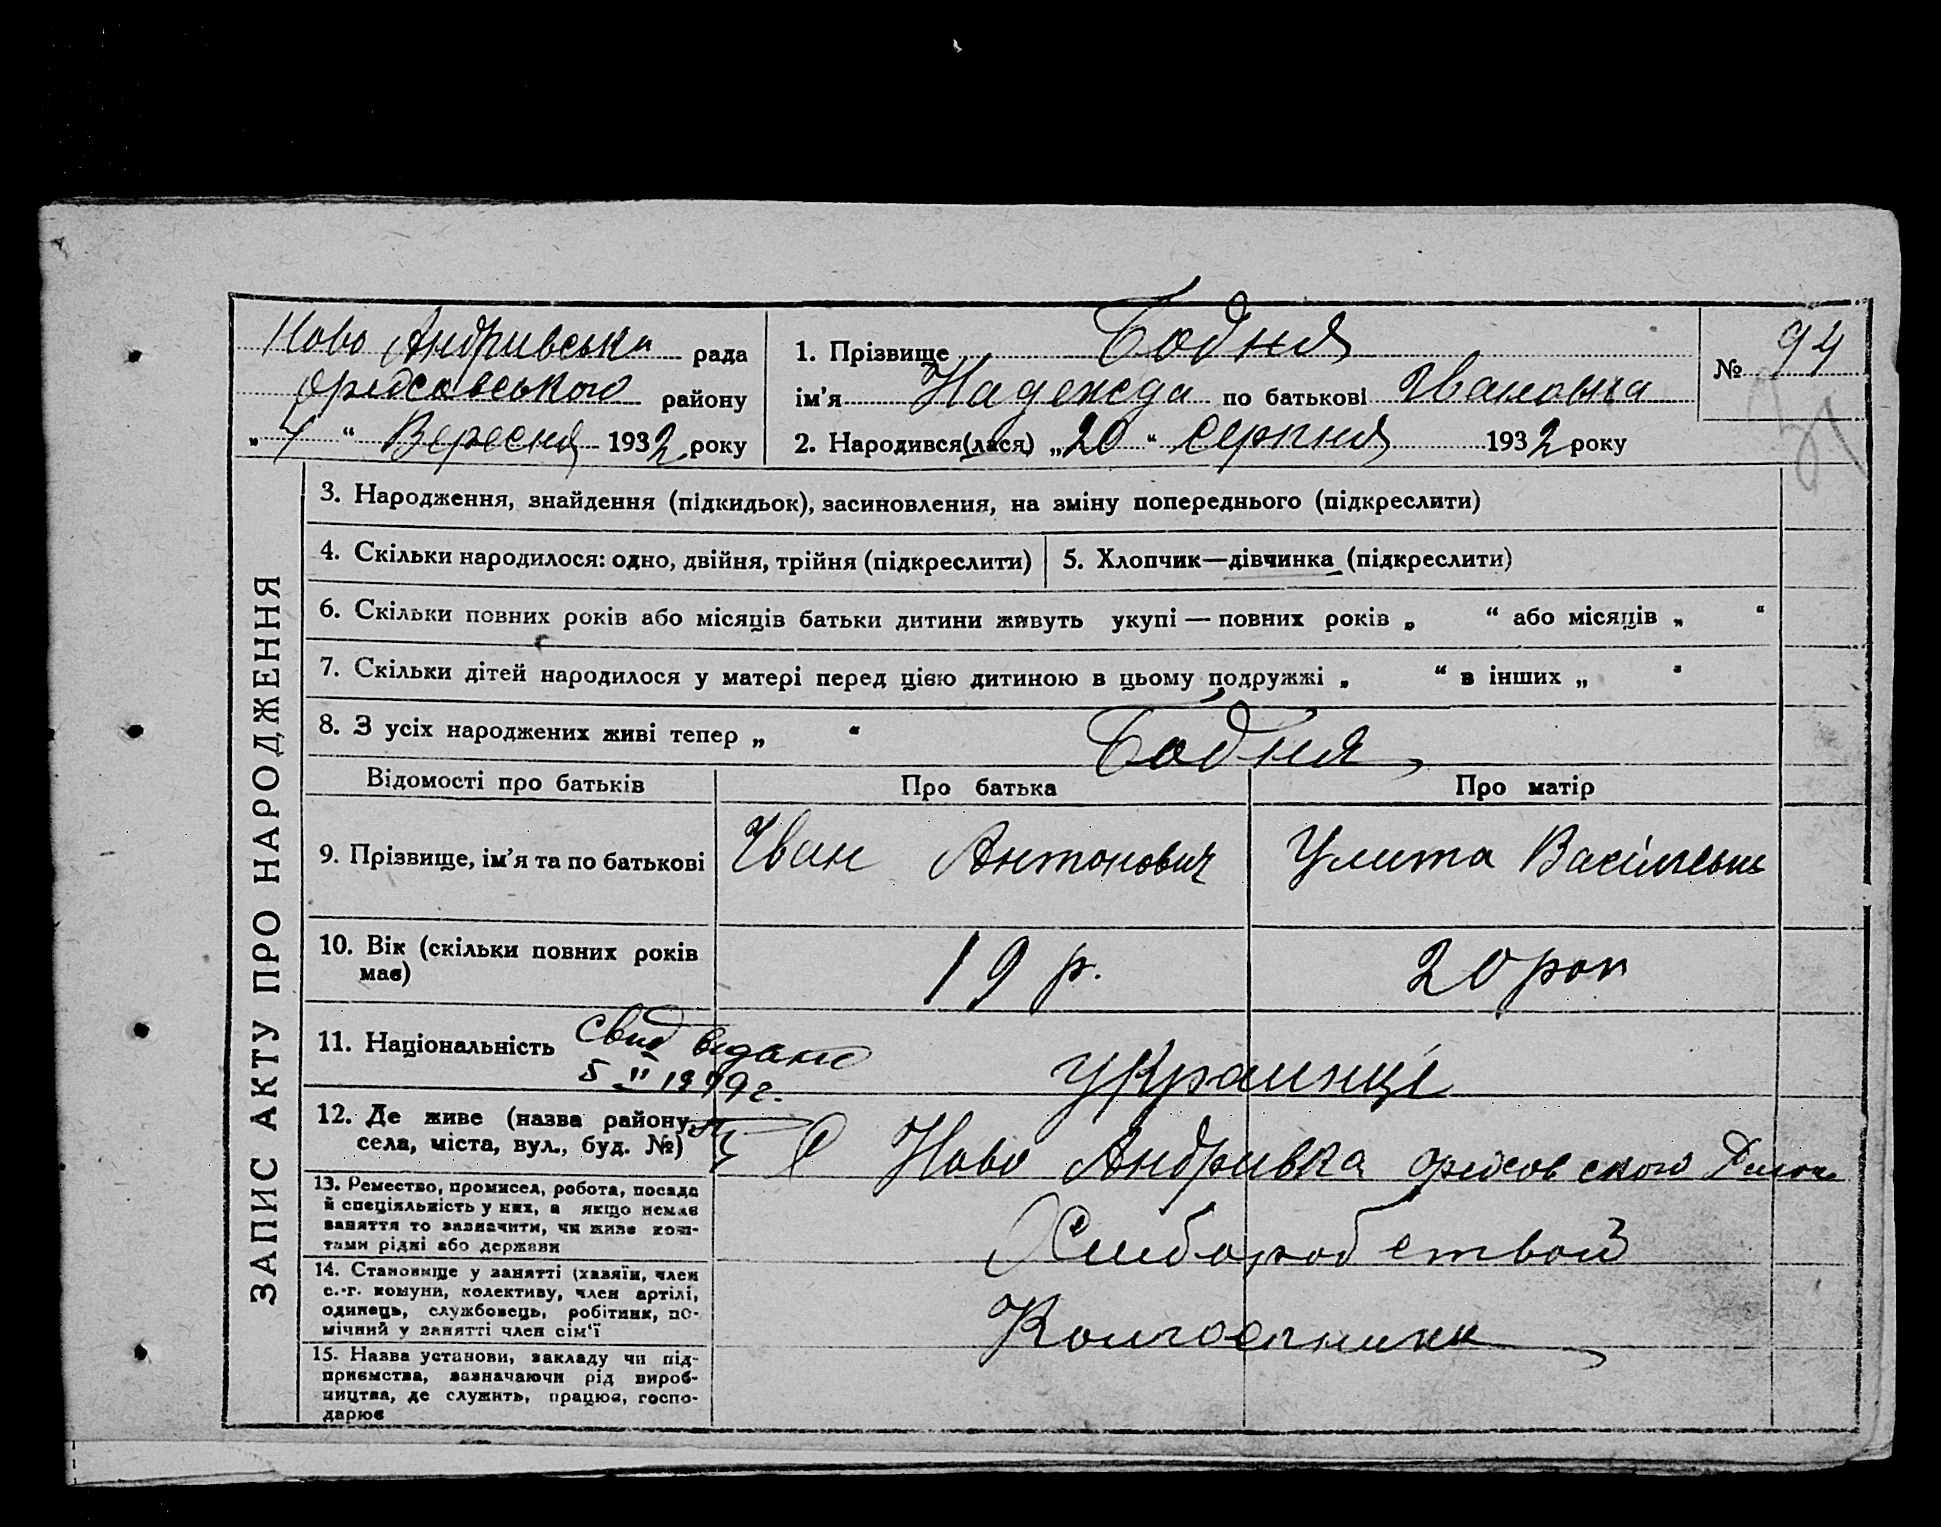 Ново Андривська рада
району
„ 4 “ Вересня 1932 року
1. Прізвище Бодня
ім’я Надежда по батькові Ивановна
2. Народився(лася) „20“ серпня 1932 року
№ 94
ЗАПИС АКТУ ПРО НАРОДЖЕННЯ
3. Народження, знайдення (підкидьок), засиновлення, на зміну попереднього (підкреслити)
4. Скільки народилося: одно, двійня, трійня (підкреслити)
5. Хлопчик—дівчинка (підкреслити)
6. Скільки повних років або місяців батьки дитини живуть укупі — повних років „ “ або місяців „ “
7. Скільки дітей народилося у матері перед цією дитиною в цьому подружжі „ “ в інших „ “
8. З усіх народжених живі тепер „ “
Бодня
Відомості про батьків
Про батька
Про матір
9. Прізвище, ім’я та по батькові
Иван Антонович
Улита
10. Вік (скільки повних років
має)
19 р.
20 рок
11. Національність
Свид
украинці
12. Де живе (назва району,
села, міста, вул., буд. №)
Ново Андривка
13. Ремество, промисел, робота, посада
й спеціяльність у них, а якщо немає
заняття то зазначити, чи живе кош-
тами рідні або держави
Хлиборобством
14. Становище у занятті (хазяїн, член
с.-г. комуни, колективу, член артілі,
одинець, службовець, робітник, по-
мічний у занятті член сім’ї
Колгоспники
15. Назва установи, закладу чи під-
приємства, зазначаючи рід вироб-
ництва, де служить, працює, госпо-
дарює